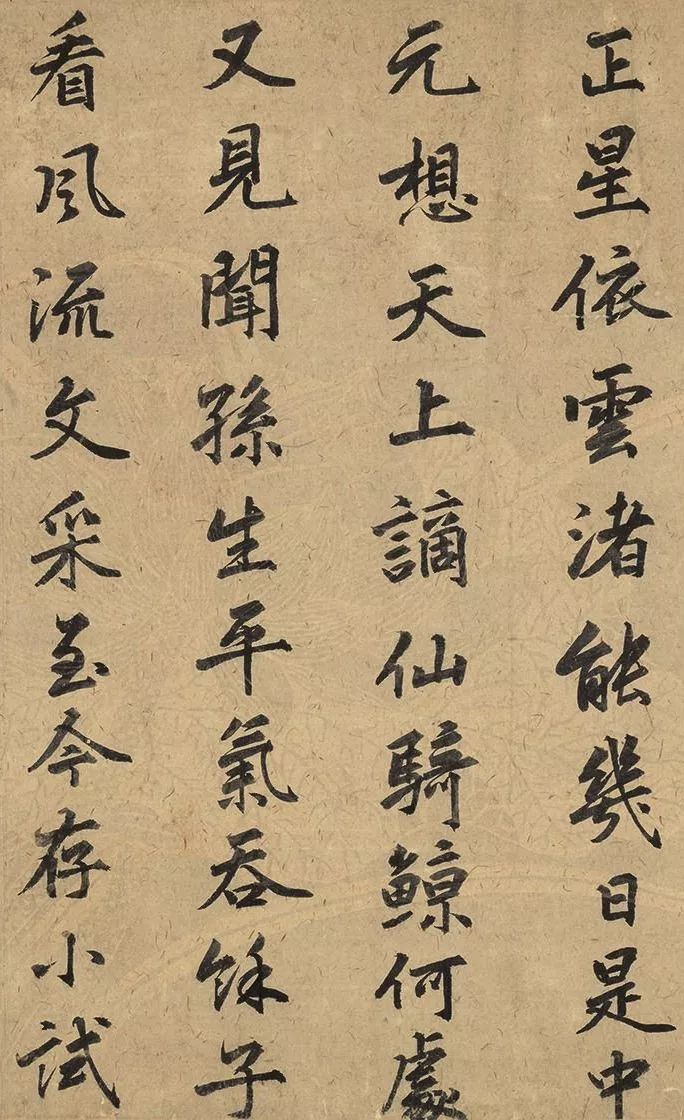 正星依雲渚能幾日是中
元想天上謫仙騎鯨何處
又見聞孫生平氣吞餘子
看風流文采至今存小試